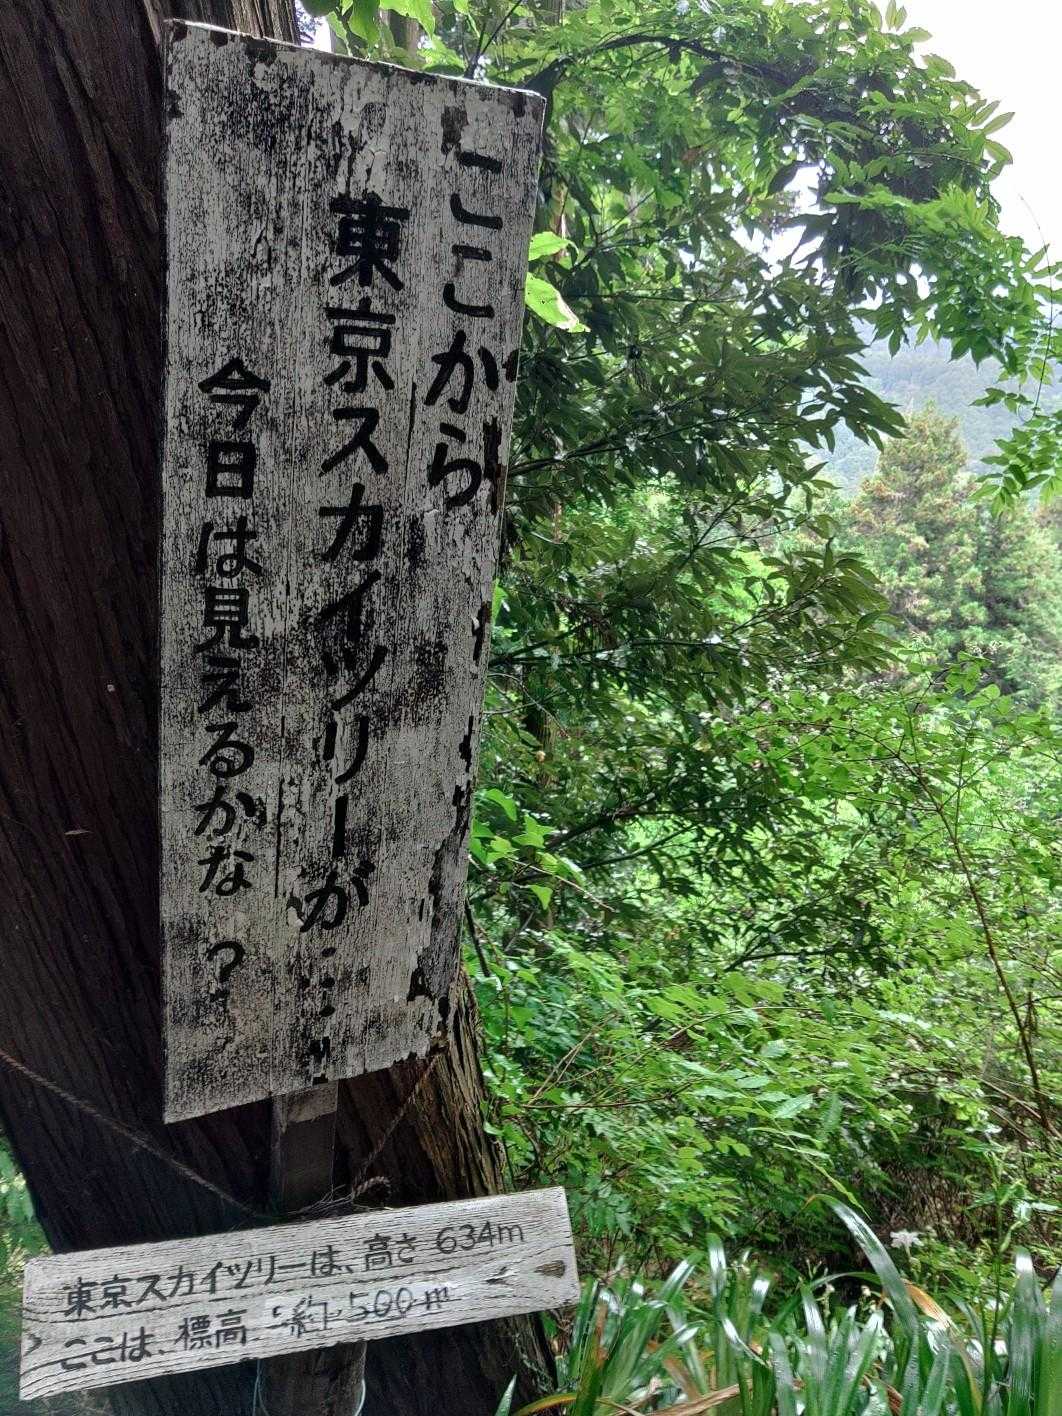 ここから
東京スカイツリーが……
今日は見えるかな?
東京スカイツリーは、高さ 634m
ここは、標高 約500m